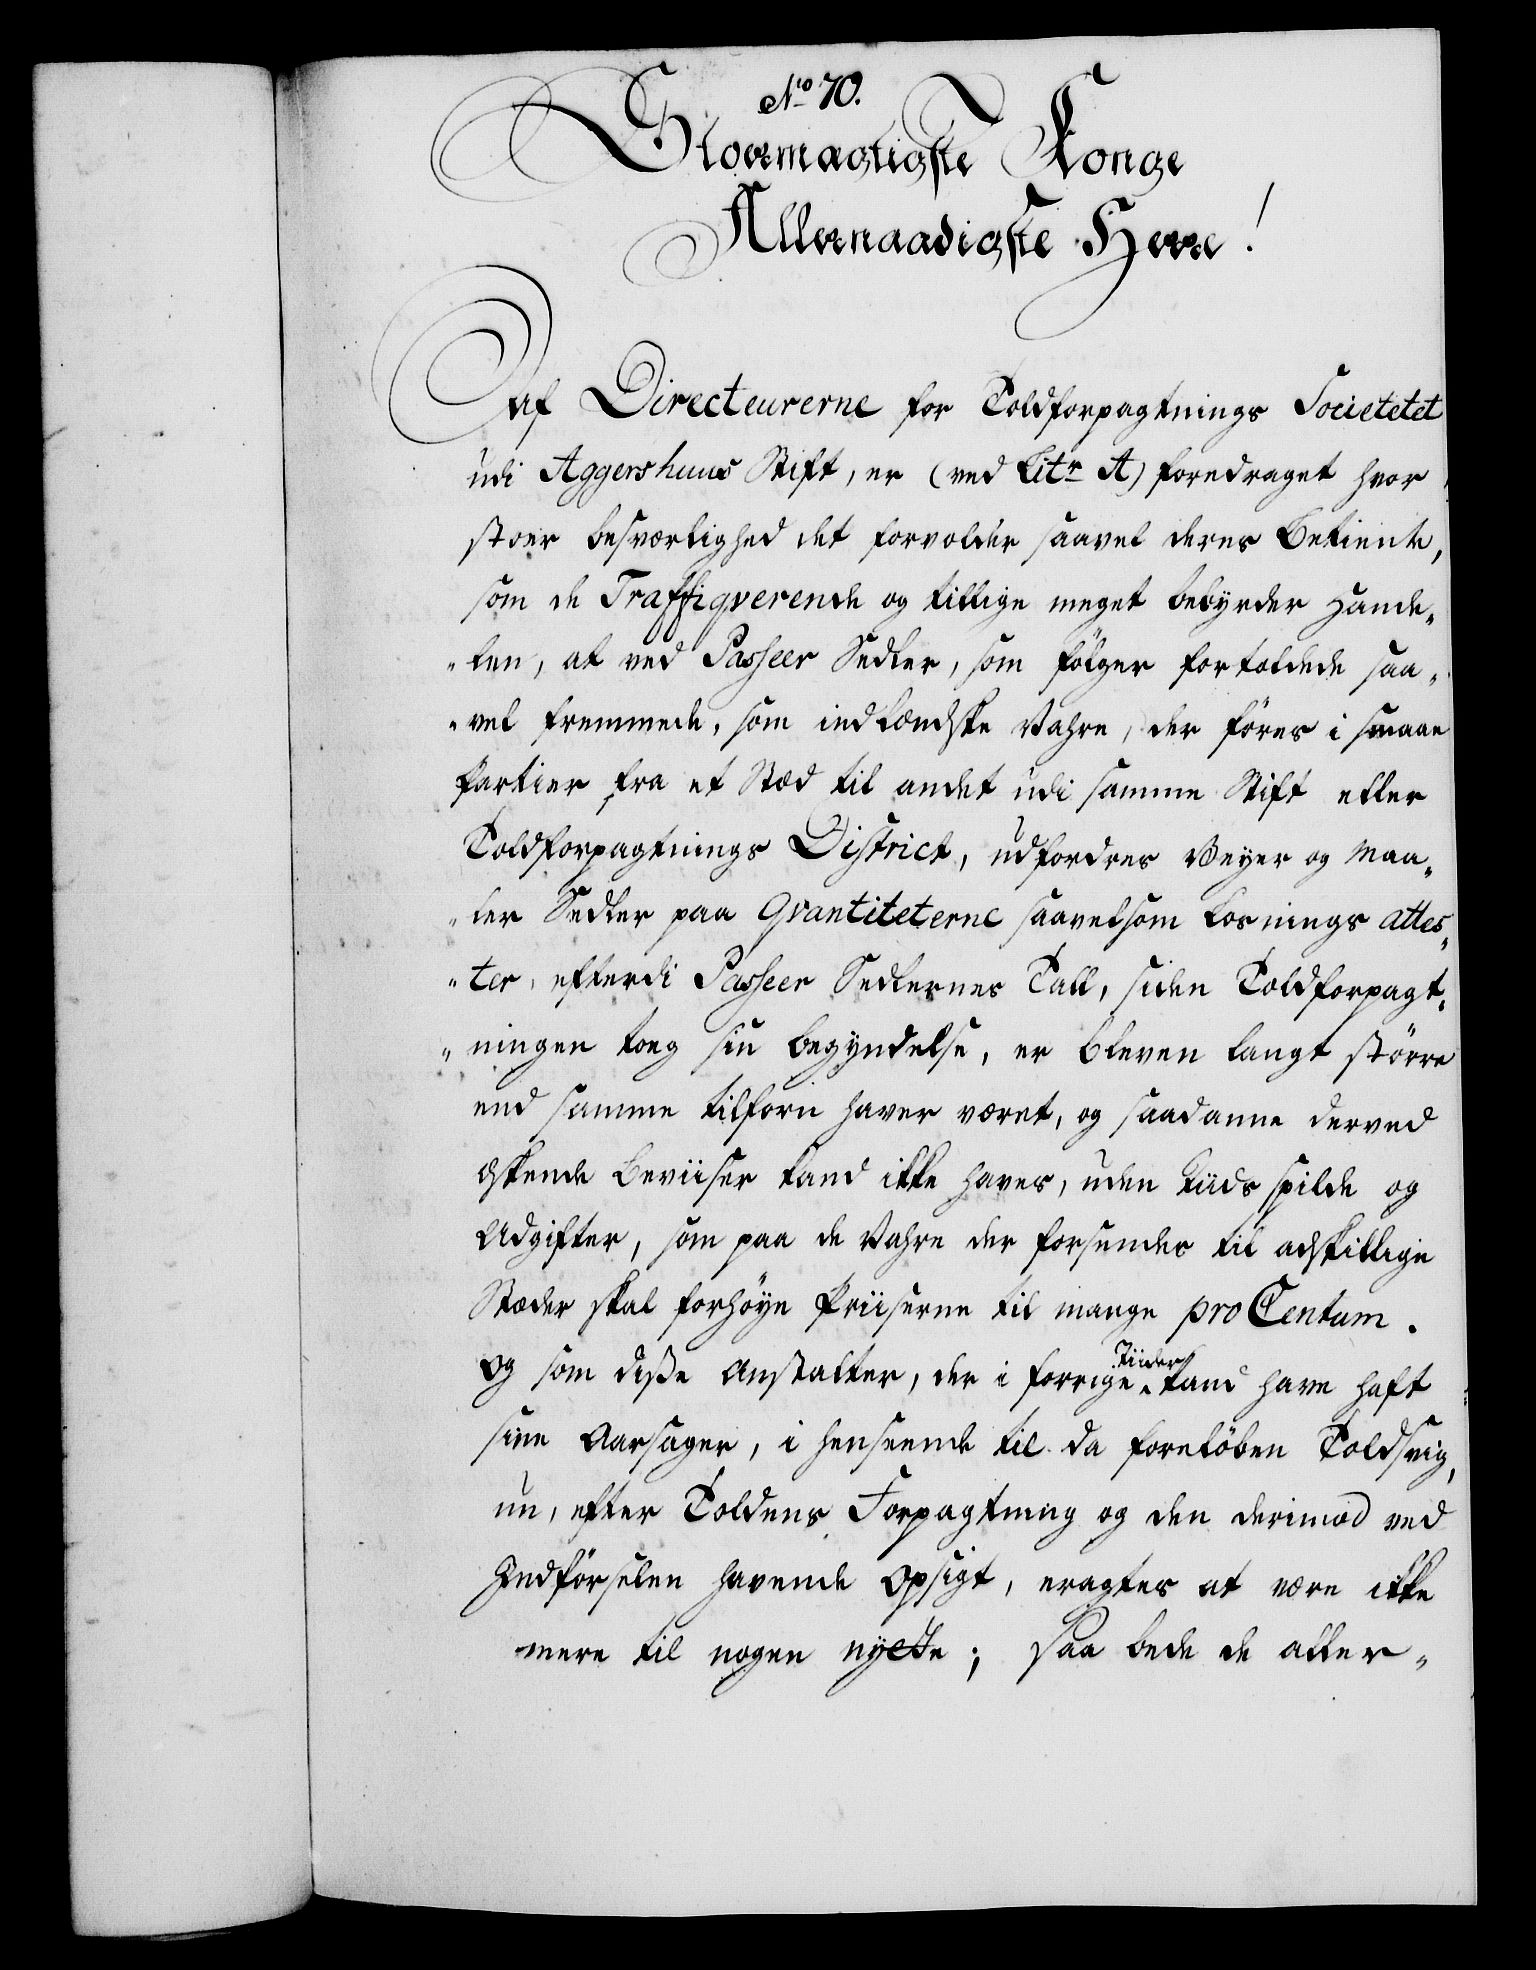 No 70.
Stormægtigste Konge
Allernaadigste Herre!
Af Directeurerne for Toldforpagtnings Societetet
udi Aggershuus Stift, er (ved Litr A) foredraget hvor
stoer besværlighed det forvolder saavel deres Betiente,
som de Traffiqverende og tillige meget bebyrder Hande„
„len, at ved Passeer Sedler, som fölger fortoldede saa„
„vel fremmede, som indlændske Vahre, der föres i smaae
Partier fra et Stæd til andet udi samme Stift eller
Toldforpagtnings District, udfordres Veyer og Maa„
„ler Sedler paa Qvantiteterne saavelsom Losnings attes„
„ter, efterdi Passeer Sedlernes Tall, siden Toldforpagt„
„ningen toeg sin begyndelse, er bleven langt större
end samme tilforn haver været, og saadanne derved
æskende Beviiser kand ikke haves, uden Tiids spilde og
Udgifter, som paa de Vahre der forsendes til adskillige
Stæder skal forhöye Priiserne til mange pro Centum.
Og som disse Anstalter, der i forrige Tiider kand have haft
sine Aarsager, i henseende til da foreløben Toldsvig,
nu, efter Toldens Forpagtning og den derimod ved
Indförselen havende Opsigt, eragtes at være ikke
mere til nogen nytte; saa bede de aller„